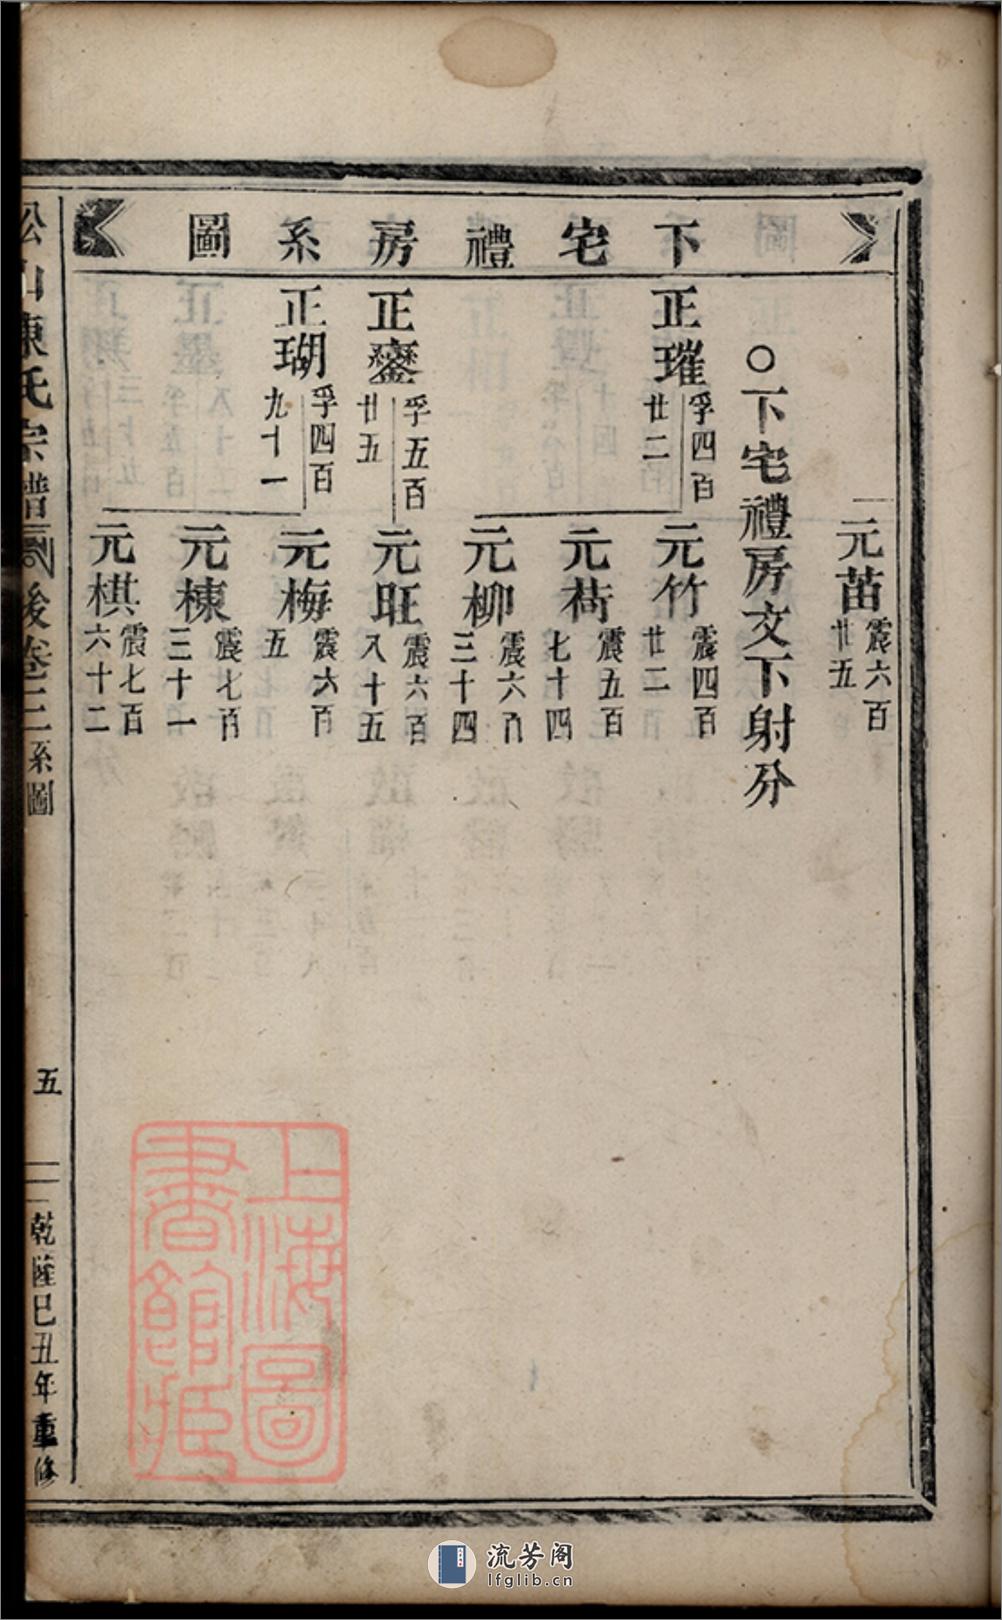 下宅禮房系圖
元苗 震六百廿五
○下宅禮房文下射分
正璀 孚四百廿二
元竹 震四百廿二
元荷 震五百七十四
元柳 震六百三十四
正鑾 孚五百廿五
元旺 震六百八十五
正瑚 孚四百九十一
元梅 震六百五
元棟 震七百三十一
元棋 震七百六十二
松山陳氏宗譜 後卷二 系圖
五
乾隆己丑年重修
上海圖書館藏
流芳阁
lfglib.cn